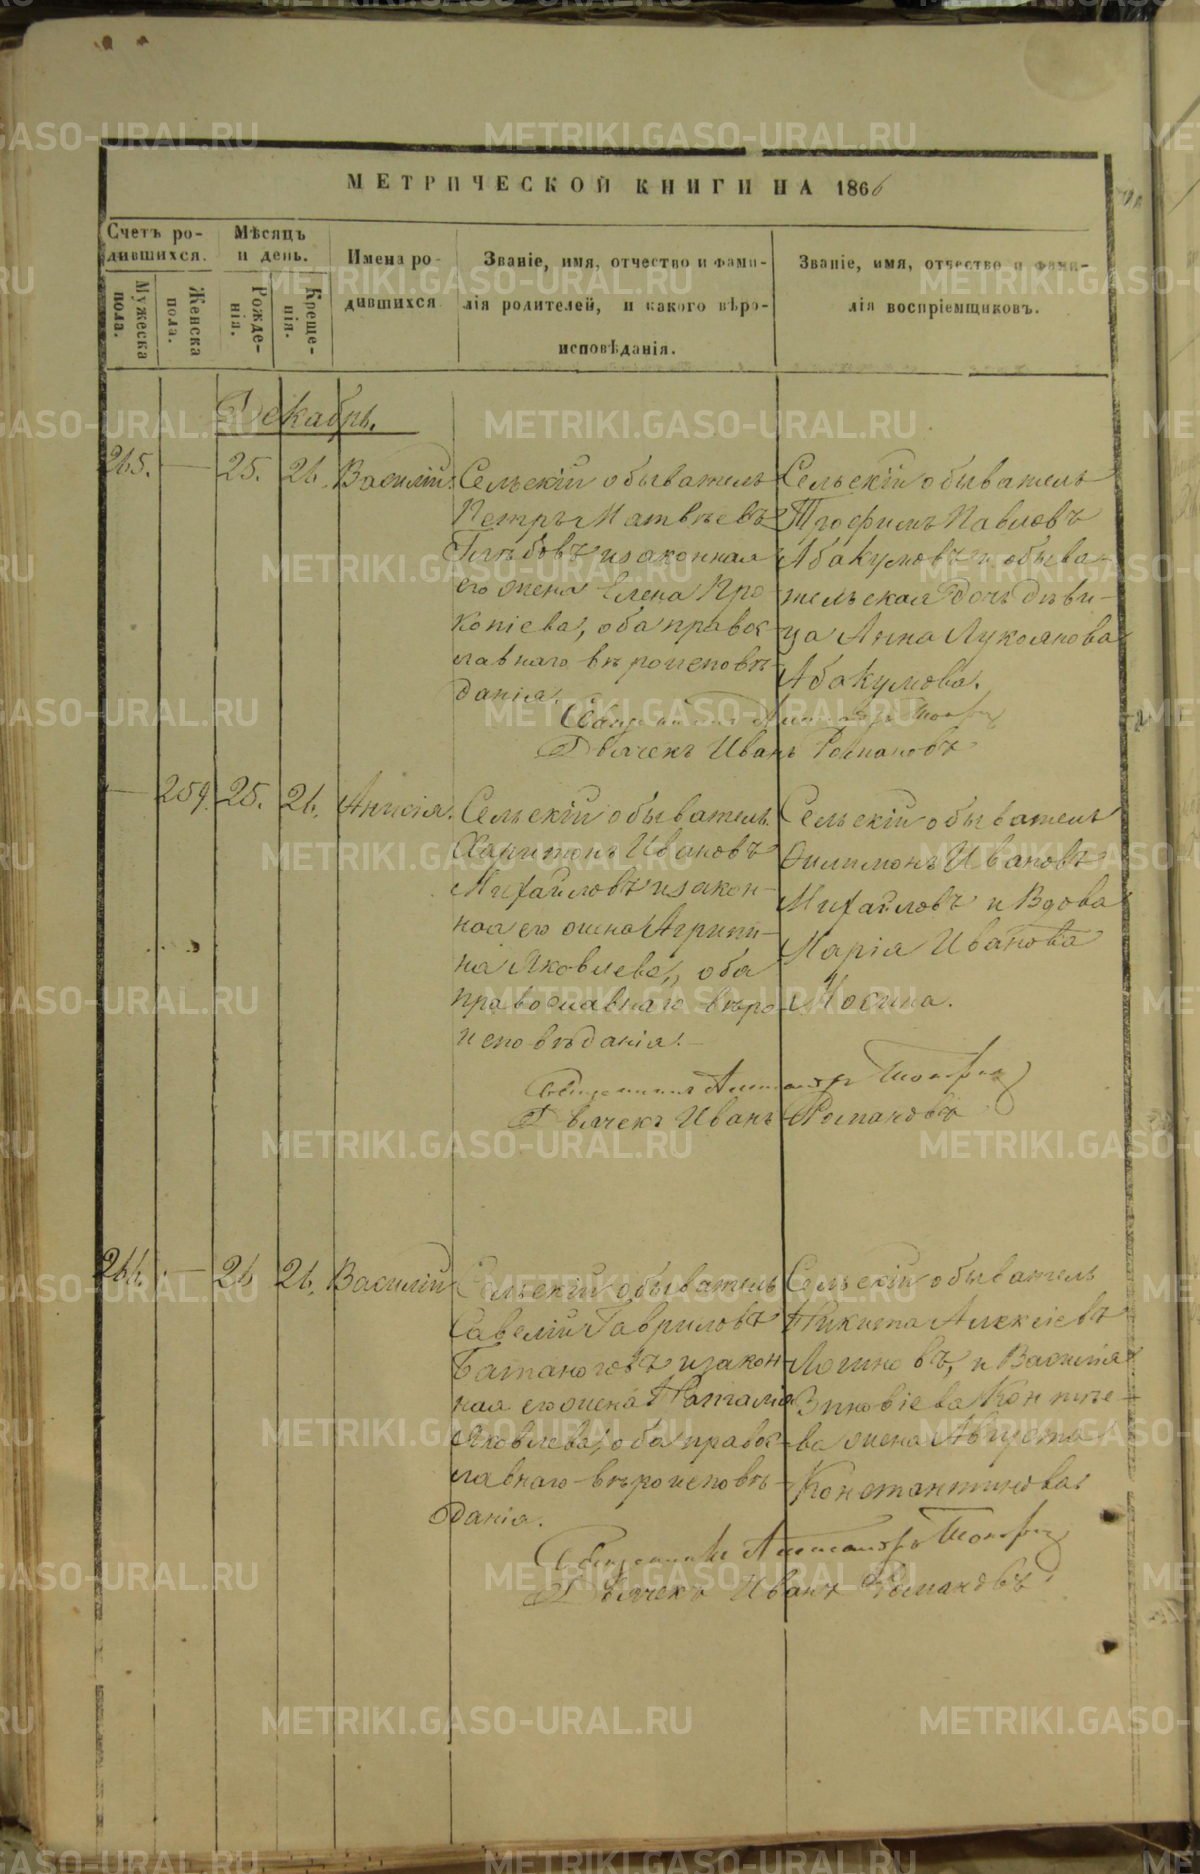 МЕТРИЧЕСКОЙ КНИГИ НА 1866
Счетъ ро-
дившихся.
Мѣсяцъ
и день.
Имена ро-
дившихся
Званіе, имя, отчество и фами-
лія родителей, и какого вѣро-
исповѣданія.
Званіе, имя, отчество и фами-
лія воспріемщиковъ.
Мужеска
пола.
Женска
пола.
Рожде-
нія.
Креще-
нія.
Декабрь.
265. 25. 26. Василій.
Сельскій обыватель
Петръ Матвѣевъ
Глѣбовъ и законная
его жена Елена Про
копіева, оба правос-
лавнаго вѣроисповѣ-
данія.
Сельскій обыватель
Трофимъ Павловъ
Абакумовъ и обыва-
тельская дочь дѣви-
ца Анна Лукоянова
Абакумова.
Священникъ Александръ
Дьячекъ Иванъ Романовъ
259. 25. 26. Анисія.
Сельскій обыватель
Харитонъ Ивановъ
Михайловъ и закон-
ная его жена Агрипи-
на Яковлева, оба
православнаго вѣро
исповѣданія.
Сельскій обыватель
Филимонъ Ивановъ
Михайловъ и Вдова
Марія Иванова
Мосина.
Священникъ Александръ
Дьячекъ Иванъ Романовъ
266. 26 26. Василій
Сельскій обыватель
Савелій Гавриловъ
и закон-
ная его жена Наталія
Яковлева, оба правос-
лавнаго вѣроисповѣ-
данія.
Сельскій обыватель
Никита Алексіевъ
Логиновъ, и Василія
Зиновіева
ва жена Августа
Константинова.
Священникъ Александръ
Дьячекъ Иванъ Романовъ
METRIKI.GASO-URAL.RU